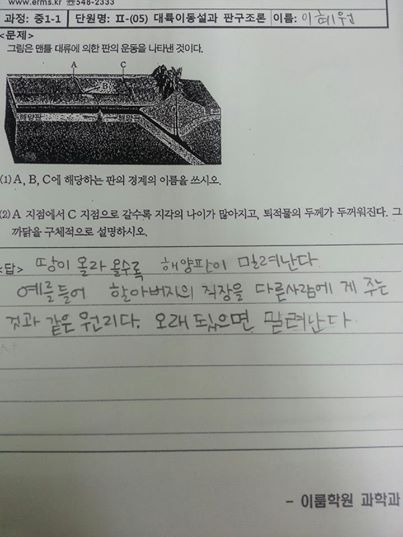 www.erms.kr ☎548-2333
과정: 중1-1 단원명: Ⅱ-(05) 대륙이동설과 판구조론 이름: 이혜원
<문제>
그림은 맨틀 대류에 의한 판의 운동을 나타낸 것이다.
A B C
해양판 해양판
(1) A, B, C에 해당하는 판의 경계의 이름을 쓰시오.
(2) A 지점에서 C 지점으로 갈수록 지각의 나이가 많아지고, 퇴적물의 두께가 두꺼워진다. 그
까닭을 구체적으로 설명하시오.
<답> 땅이 올라 올수록 해양판이 밀려난다
예를들어 할아버지의 직장을 다른사람에 게 주는
것과 같은 원리다. 오래 되었으면 밀려난다.
- 이룸학원 과학과